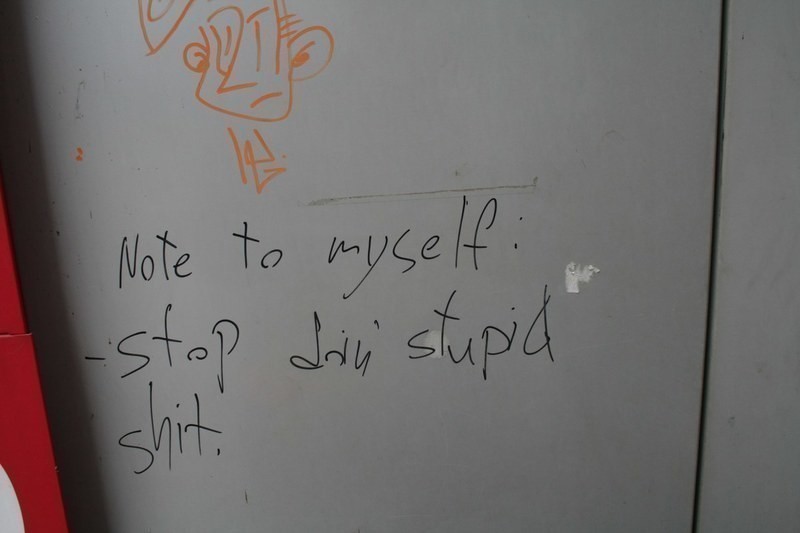 Note to myself:
-stop doin' stupid
shit.